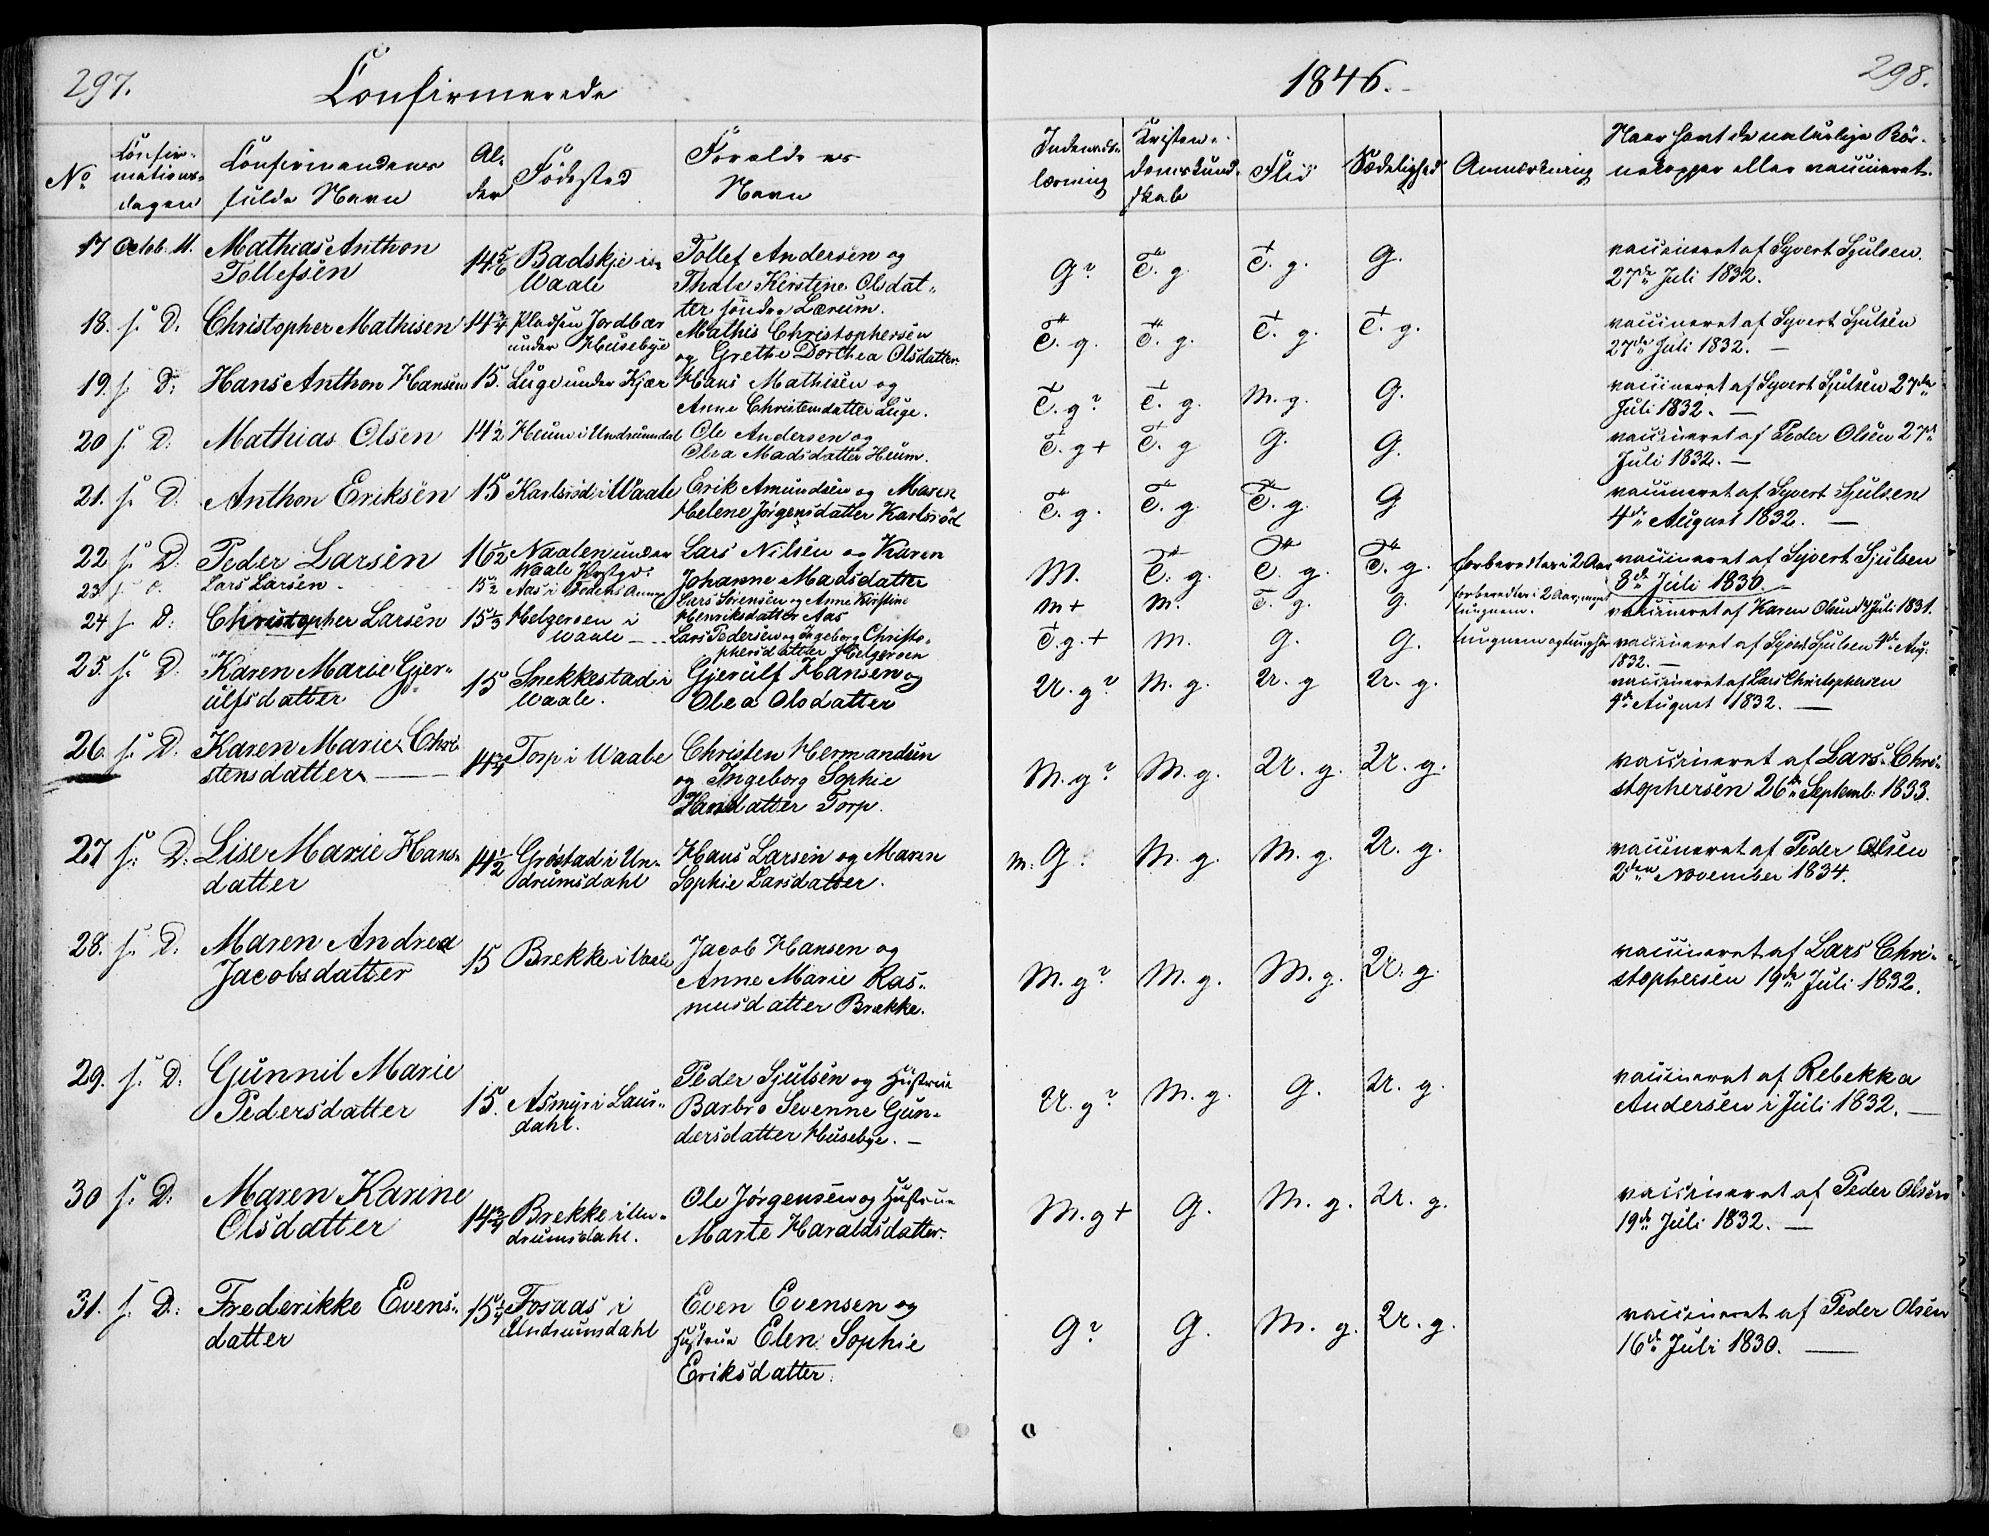 297. Confirmerede
1846. 298.
No Confirmationsdagen Confirmandens fulde Navn Alder Fødested Forældres Navn Indenadslæsning Kristendomskundskab Flid Sædelighed Anmærkning Naar havt de naturlige Børnekopper eller vaccineret.
17 Octob. 11. Mathias Anthon G? T. g. T. g. G. vaccineret af Syvert Sjulsen
Tollefsen 14 5/6 Badskje i Waale Tollef Andersen og Thale Kirstine Olsdatter søndre Lærum. 27de Juli 1832.
18. s. D. Christopher Mathisen 14 3/4 Pladsen Jordbær under Husebye Mathis Christophersen og Grethe Dorthea Olsdatter T. g. T. g. T. g. T. g. vaccineret af Syvert Sjulsen 27de Juli 1832. —
19. s. D. Hans Anthon Hansen 15. Luge under Kjær Hans Mathisen og Anne Christensdatter Luge. T. g? T. g. M. g. G. vaccineret af Syvert Sjulsen 27de Juli 1832. —
20 s. D. Mathias Olsen 14 1/2 Heum i Undrumsdal Ole Andersen og Olea Madsdatter Heum. T. g + T. g G. G. vaccineret af Peder Olsen 27de Juli 1832. —
21. s. D. Anthon Eriksen 15 Karlsrød i Waale Erik Amundsen og Maren Helene Jørgensdatter Karlsrød T. g. T. g. T. g. G vaccineret af Syvert Sjulsen 4de August 1832. —
22 s. D. Peder Larsen 16 1/2 Naalen under Waale Prstgd. Lars Nilsen og Karen Johanne Madsdatter M. T. g. T. g. T. g. forberedtes i 2 Aar vaccineret af Syvert Sjulsen 8de Juli 1830
23 s. D. Lars Larsen 15 1/2 Aas i Lars Sørensen og Anne Kirstine Henriksdatter Aas M + M. T. g. G. forberedtes i 2 Aar; tungnem. vaccineret af Karen Olsen Juli 1831.
24 s. D. Christopher Larsen 15 1/3 Helgeroen i Waale — Lars Pedersen og Ingeborg Christophersdatter Helgeroen T. g. + M. G. G. tungnem og vaccineret af Syvert Sjulsen 4de Aug. 1832. —
25. s. D. Karen Marie Gjerulfsdatter 15 Snekkestad i Waale. Gjerulf Hansen og Olea Olsdatter U. g? M. g. U. g U. g. vaccineret af Lars Christophersen 4de August 1832. —
26. s. D. Karen Marie Christensdatter — 14 3/4 Torp i Waale Christen Hermandsen og Ingeborg Sophie Hansdatter Torp. M. g? M. g. U. g. U. g. vaccineret af Lars Christophersen 26de Septemb. 1833.
27 s. D. Lise Marie Hansdatter 14 1/2 Grøstad i Undrumsdahl Hans Larsen og Maren Sophie Larsdatter. M. G. M. g. M. g. U. g. vaccineret af Peder Olsen 2den November 1834.
28. s. D. Maren Andrea Jacobsdatter 15 Brekke i Vaale Jacob Hansen og Anne Marie Rasmusdatter Brække. M. g? M. g. M. g. U. g. vaccineret af Lars Christophersen 19de Juli 1832.
29. s. D. Gunnil Marie Pedersdatter 15. Asmyr i Laurdahl. Peder Sjulsen og Hustrue Barbro Sevenne Gundersdatter Husebye. — U. g? M. g. G. U. g. vaccineret af Rebekka Andersen i Juli 1832. —
30 s. D. Maren Karine Olsdatter 14 3/4 Brekke i Undrumsdahl. Ole Jørgensen og Hustrue Marte Haraldsdatter. M. g + G. M. g. U. g. vaccineret af Peder Olsen 19de Juli 1832. —
31. s. D. Frederikke Evensdatter 15 1/4 Fosaas i Undrumsdahl Even Evensen og Hustrue Elen Sophie Eriksdatter. G? G. M. g. U. g. vaccineret af Peder Olsen 16de Juli 1830. —